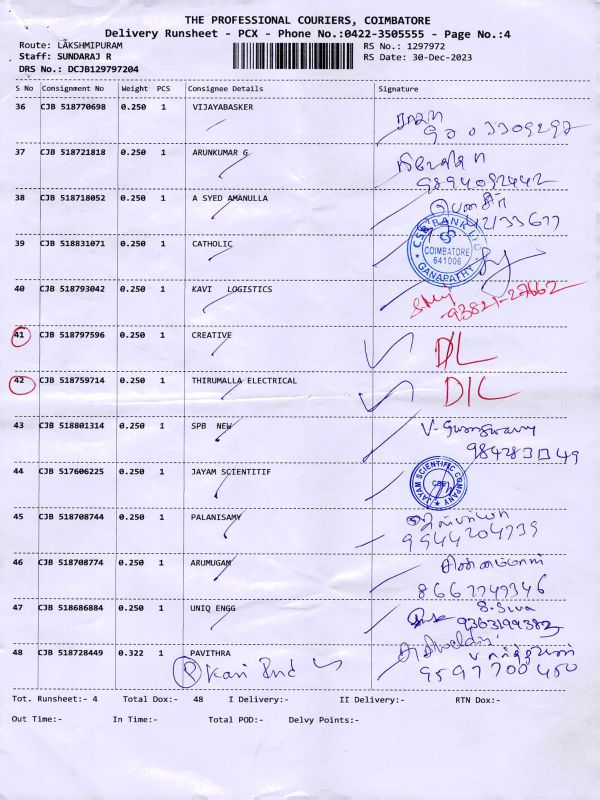 THE PROFESSIONAL COURIERS, COIMBATORE
Delivery Runsheet - PCX - Phone No.:0422-3505555 - Page No.:4
Route: LAKSHMIPURAM RS No.: 1297972
Staff: SUNDARAJ R RS Date: 30-Dec-2023
DRS No.: DCJB129797204
S No Consignment No Weight PCS Consignee Details Signature
36 CJB 518770698 0.250 1 VIJAYABASKER
9003309292
37 CJB 518721818 0.250 1 ARUNKUMAR G
9894092442
38 CJB 518718052 0.250 1 A SYED AMANULLA
39 CJB 518831071 0.250 1 CATHOLIC
CSB BANK LTD
COIMBATORE
641006
GANAPATHY
40 CJB 518793042 0.250 1 KAVI LOGISTICS
93821-27662
41 CJB 518797596 0.250 1 CREATIVE D/L
42 CJB 518759714 0.250 1 THIRUMALLA ELECTRICAL D/L
43 CJB 518801314 0.250 1 SPB NEW
44 CJB 517606225 0.250 1 JAYAM SCIENTITIF
JAYAM SCIENTIFIC COMPANY
CBE
45 CJB 518708744 0.250 1 PALANISAMY
9944204739
46 CJB 518708774 0.250 1 ARUMUGAM
8667747346
47 CJB 518686884 0.250 1 UNIQ ENGG
S. Siva
9363199382
48 CJB 518728449 0.322 1 PAVITHRA
R Kavi Ind
9597700450
Tot. Runsheet:- 4 Total Dox:- 48 I Delivery:- II Delivery:- RTN Dox:-
Out Time:- In Time:- Total POD:- Delvy Points:-